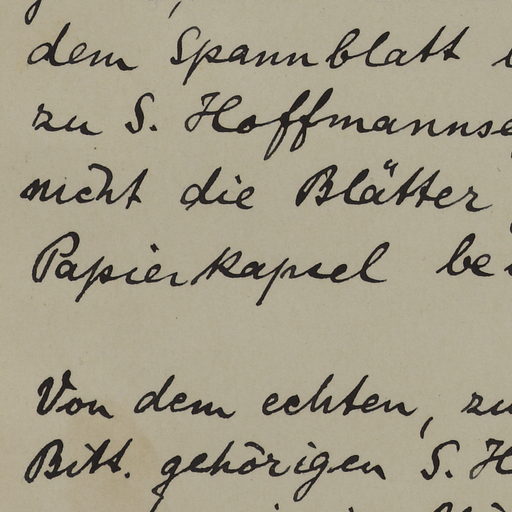 dem Spannblatt
zu S. Hoffmannse
nicht die Blätter
Papierkapsel be
Von dem echten, zu
Bitt. gehörigen S. H